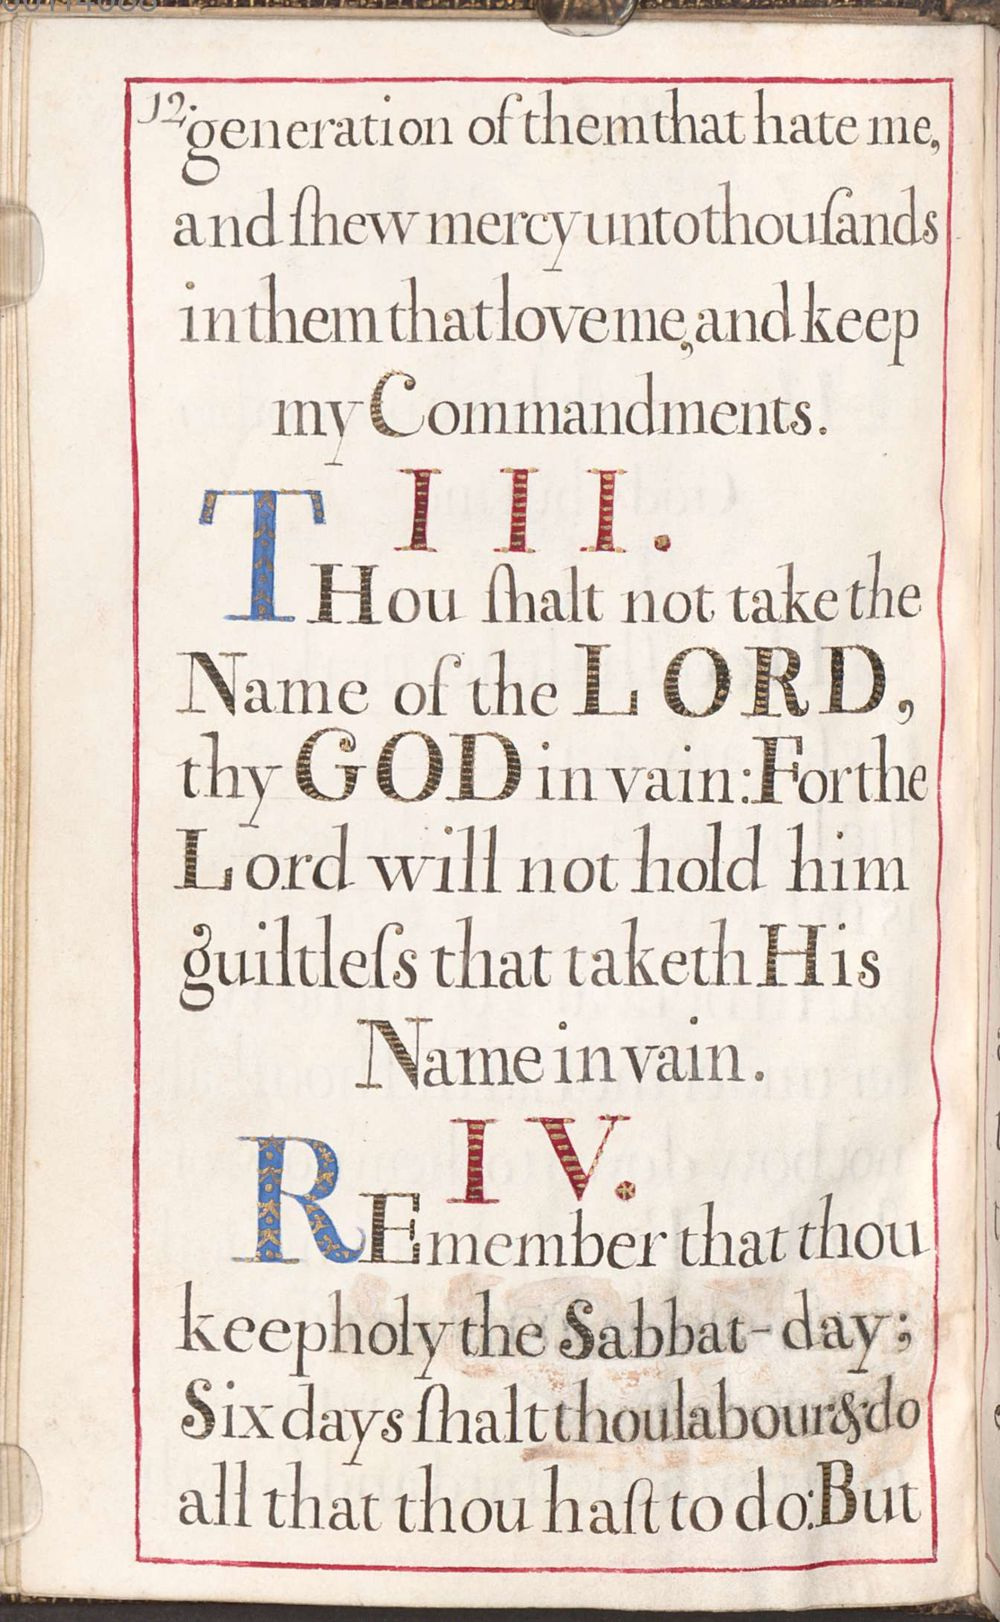 12.
generation of them that hate me,
and ſhew mercy unto thouſands
in them that love me, and keep
my Commandments.
III.
THou ſhalt not take the
Name of the LORD,
thy GOD in vain: For the
Lord will not hold him
guiltleſs that taketh His
Name in vain.
IV.
REmember that thou
keep holy the Sabbat-day;
Six days ſhalt thou labour & do
all that thou haſt to do: But